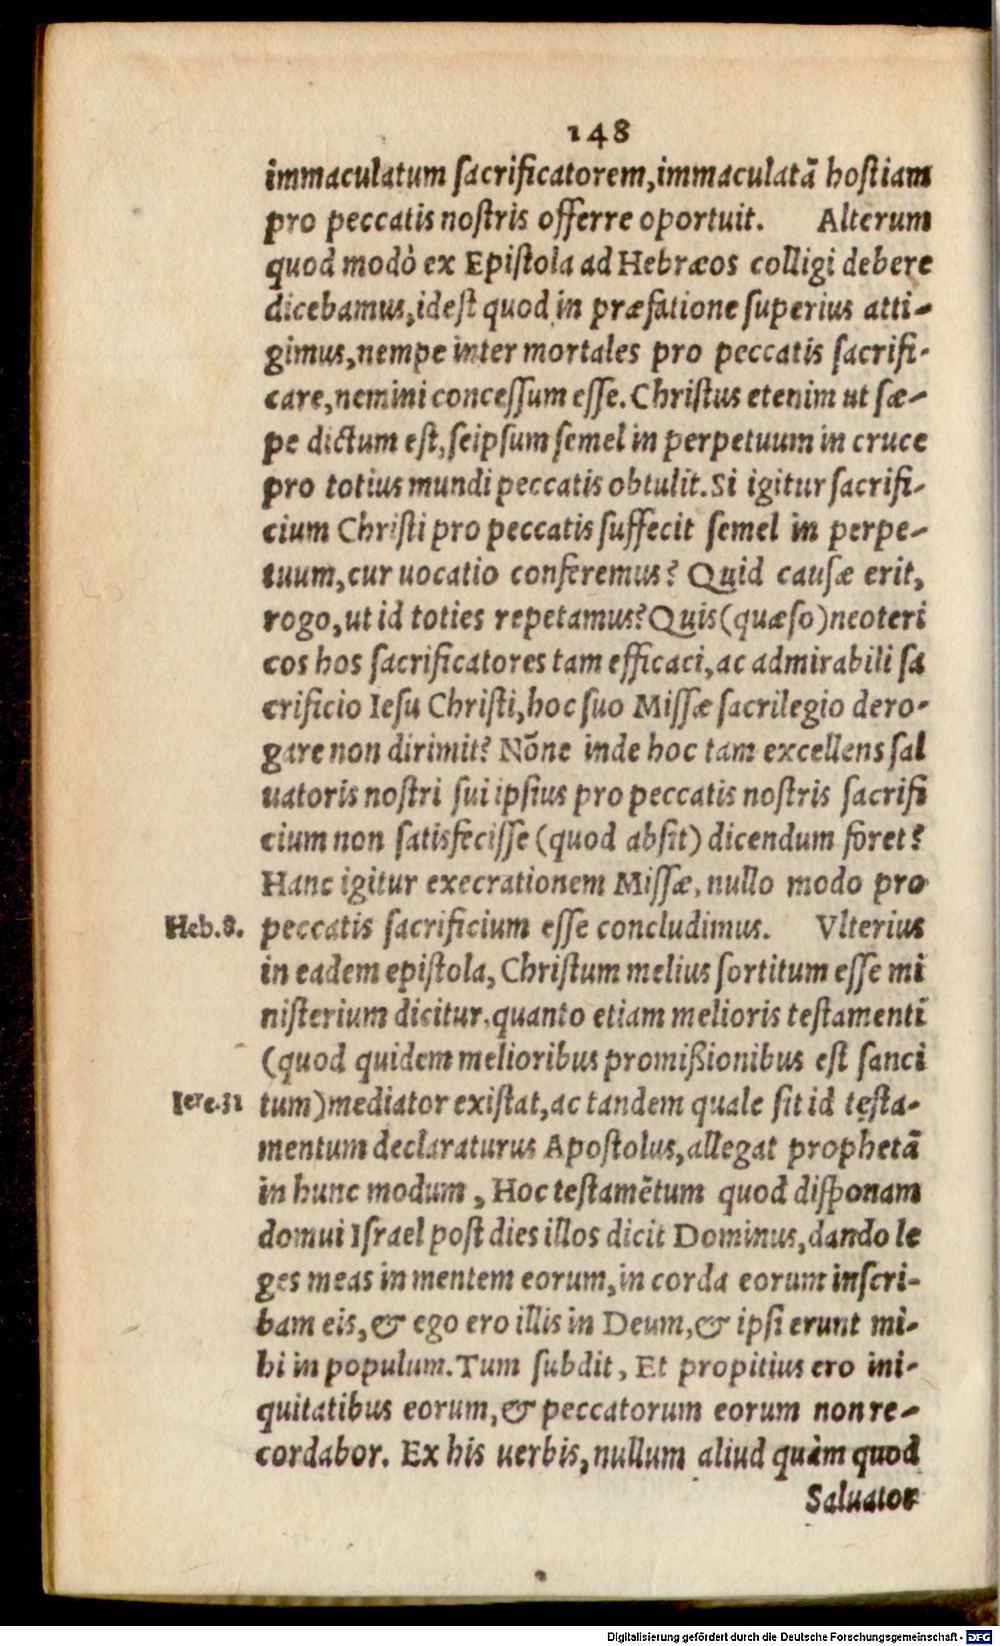 148
immaculatum sacrificatorem, immaculatā hostiam
pro peccatis nostris offerre oportuit. Alterum
quod modò ex Epistola ad Hebræos colligi debere
dicebamus, idest quod in præfatione superius atti-
gimus, nempe inter mortales pro peccatis sacrifi-
care, nemini concessum esse. Christus etenim ut sæ-
pe dictum est, seipsum semel in perpetuum in cruce
pro totius mundi peccatis obtulit. Si igitur sacrifi-
cium Christi pro peccatis suffecit semel in perpe-
tuum, cur uocatio conferemus? Quid causæ erit,
rogo, ut id toties repetamus? Quis (quæso) neoteri
cos hos sacrificatores tam efficaci, ac admirabili sa
crificio Iesu Christi, hoc suo Missæ sacrilegio dero-
gare non dirimit? Nōne inde hoc tam excellens sal
uatoris nostri sui ipsius pro peccatis nostris sacrifi
cium non satisfecisse (quod absit) dicendum foret?
Hanc igitur execrationem Missæ, nullo modo pro
Heb.8. peccatis sacrificium esse concludimus. Vlterius
in eadem epistola, Christum melius sortitum esse mi
nisterium dicitur, quanto etiam melioris testamenti
(quod quidem melioribus promißionibus est sanci
Iere.31 tum) mediator existat, ac tandem quale sit id testa-
mentum declaraturus Apostolus, allegat prophetā
in hunc modum, Hoc testamētum quod disponam
domui Israel post dies illos dicit Dominus, dando le
ges meas in mentem eorum, in corda eorum inscri-
bam eis, & ego ero illis in Deum, & ipsi erunt mi-
hi in populum. Tum subdit, Et propitius ero ini-
quitatibus eorum, & peccatorum eorum non re-
cordabor. Ex his uerbis, nullum aliud quàm quod
Saluator
Digitalisierung gefördert durch die Deutsche Forschungsgemeinschaft - DFG